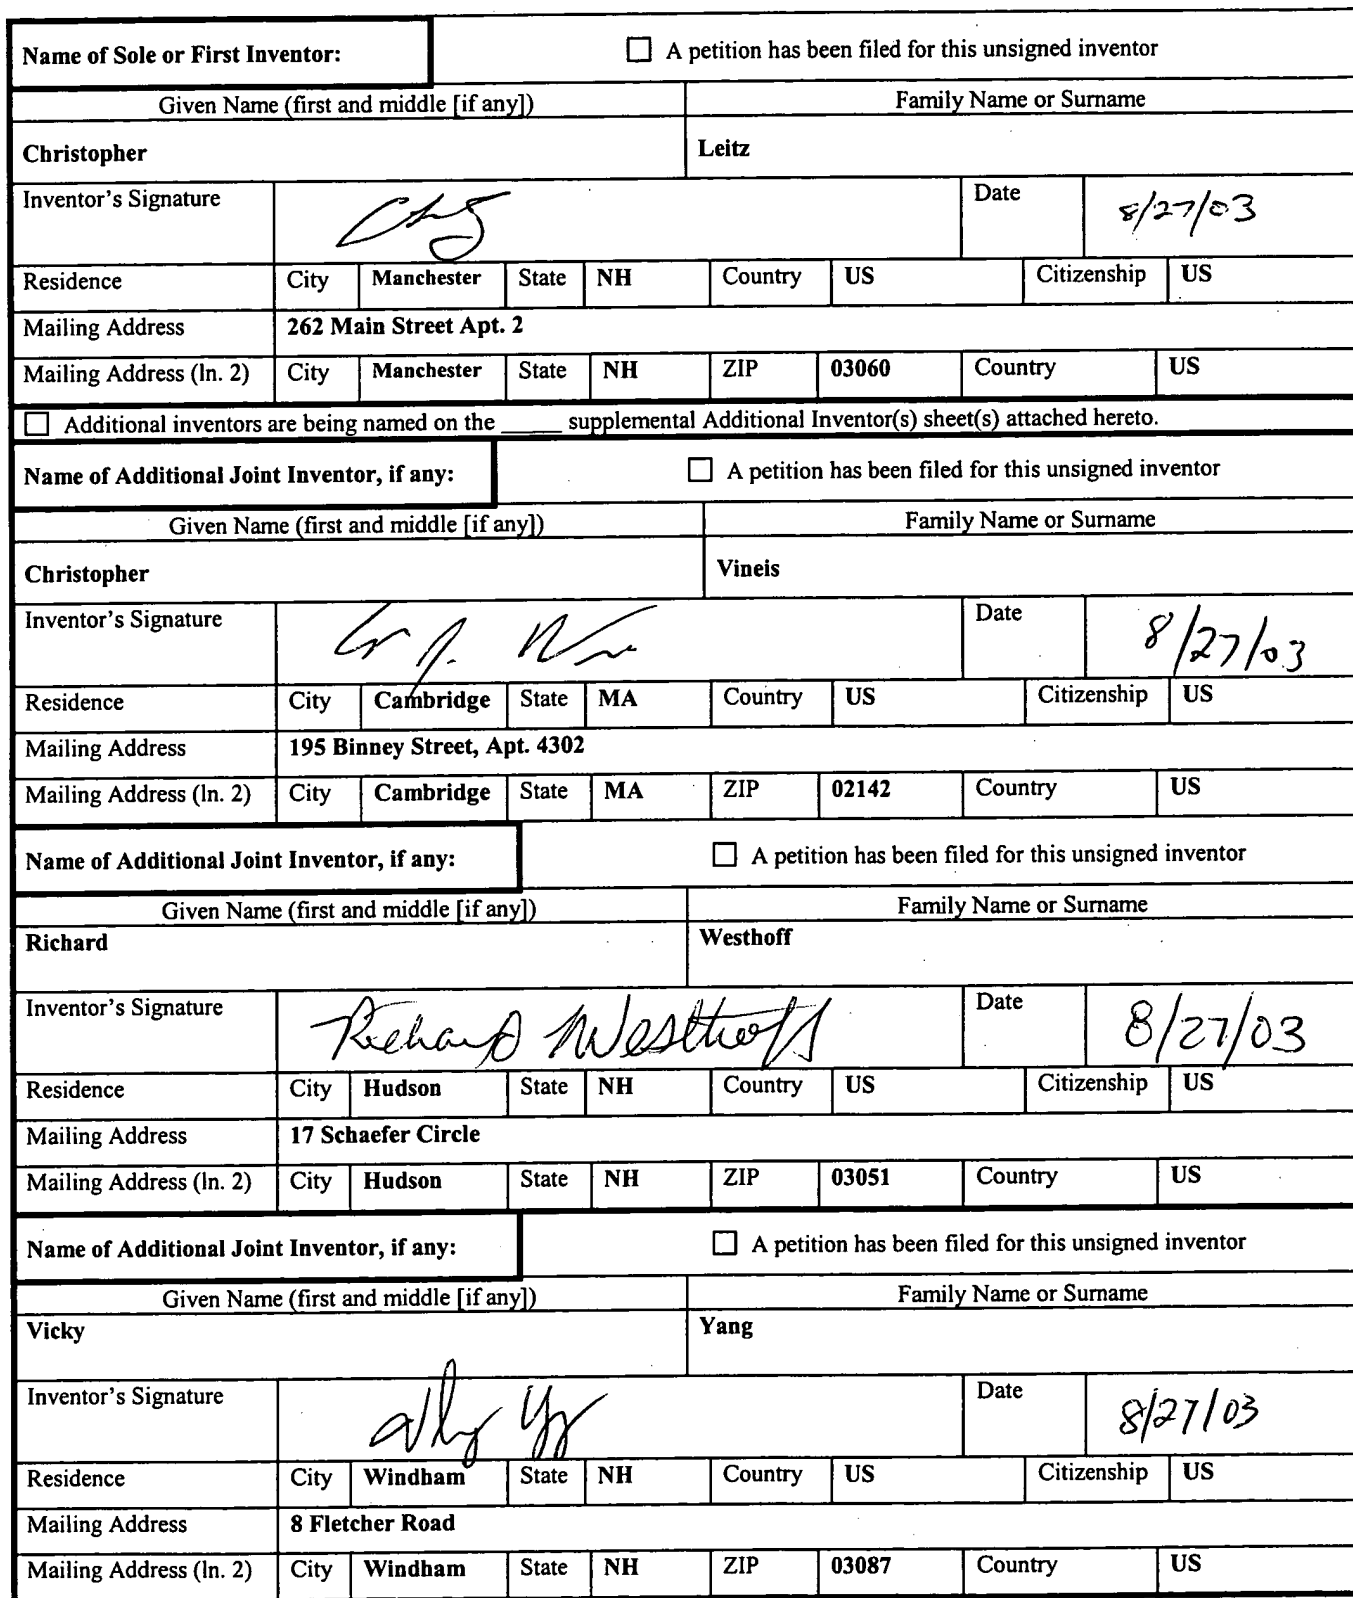 Name of Sole or First Inventor: ☐ A petition has been filed for this unsigned inventor
Given Name (first and middle [if any]) Family Name or Surname
Christopher Leitz
Inventor's Signature Date 8/27/03
Residence City Manchester State NH Country US Citizenship US
Mailing Address 262 Main Street Apt. 2
Mailing Address (ln. 2) City Manchester State NH ZIP 03060 Country US
☐ Additional inventors are being named on the _____ supplemental Additional Inventor(s) sheet(s) attached hereto.
Name of Additional Joint Inventor, if any: ☐ A petition has been filed for this unsigned inventor
Given Name (first and middle [if any]) Family Name or Surname
Christopher Vineis
Inventor's Signature Date 8/27/03
Residence City Cambridge State MA Country US Citizenship US
Mailing Address 195 Binney Street, Apt. 4302
Mailing Address (ln. 2) City Cambridge State MA ZIP 02142 Country US
Name of Additional Joint Inventor, if any: ☐ A petition has been filed for this unsigned inventor
Given Name (first and middle [if any]) Family Name or Surname
Richard Westhoff
Inventor's Signature Richard Westhoff Date 8/27/03
Residence City Hudson State NH Country US Citizenship US
Mailing Address 17 Schaefer Circle
Mailing Address (ln. 2) City Hudson State NH ZIP 03051 Country US
Name of Additional Joint Inventor, if any: ☐ A petition has been filed for this unsigned inventor
Given Name (first and middle [if any]) Family Name or Surname
Vicky Yang
Inventor's Signature Date 8/27/03
Residence City Windham State NH Country US Citizenship US
Mailing Address 8 Fletcher Road
Mailing Address (ln. 2) City Windham State NH ZIP 03087 Country US